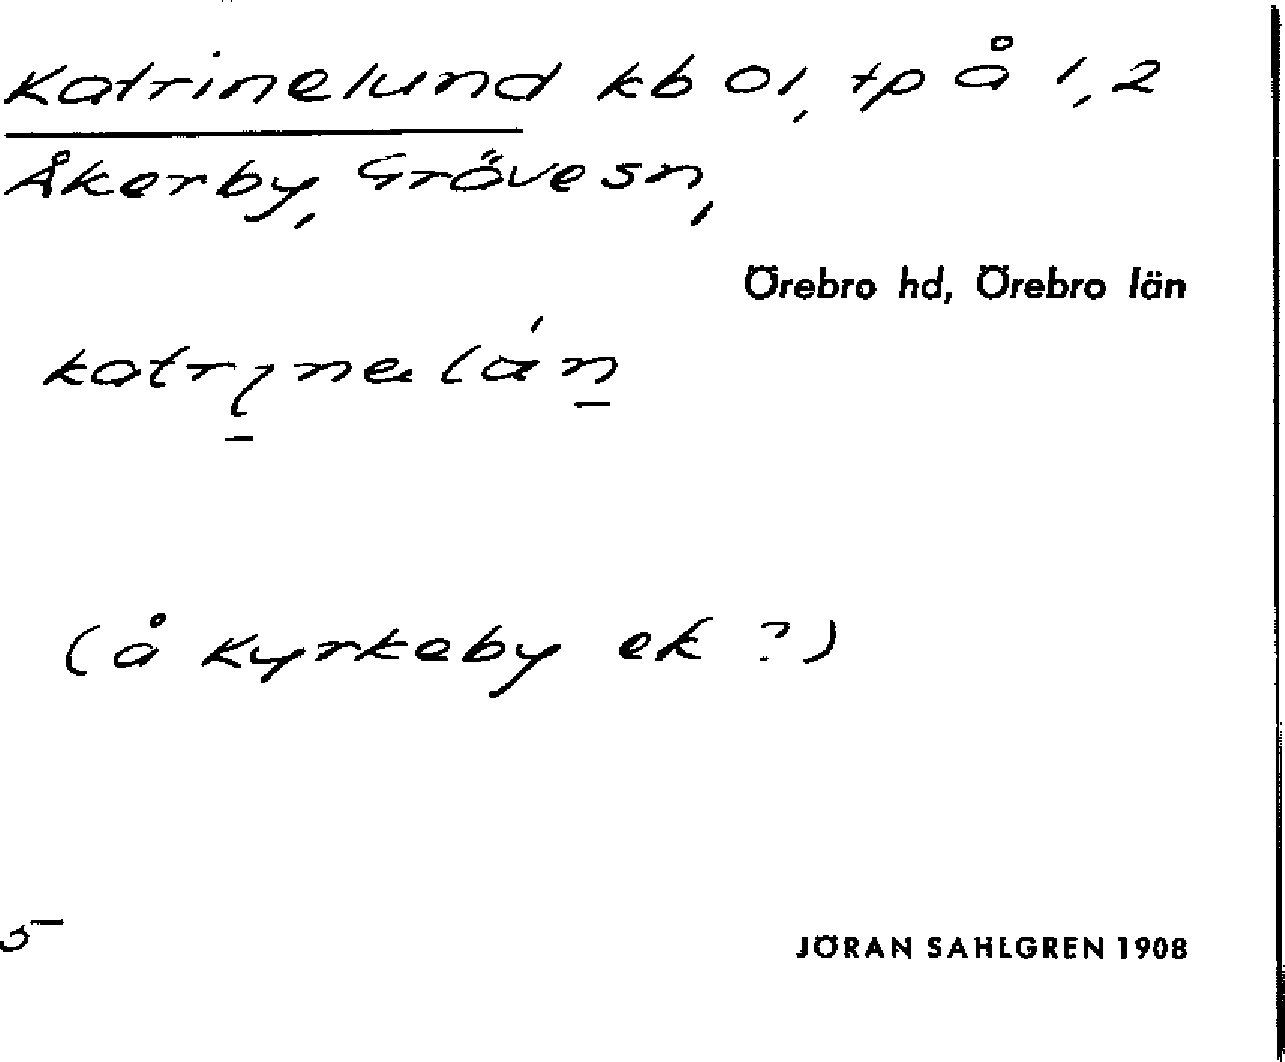 Katrinelund kb 01, tp å 1,2
Åkerby, Gräve sn,
Örebro hd, Örebro län
(å Kyrkeby ek ?)
5
JÖRAN SAHLGREN 1908